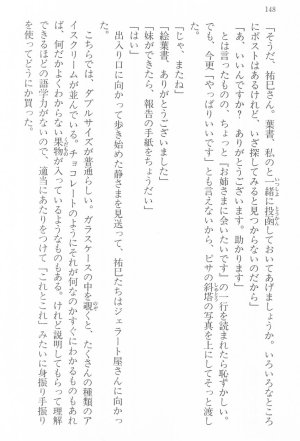 148
「そうだ、祐巳さん。葉書、私のと一緒に投函しておいてあげましょうか。いろいろなところ
にポストはあるけれど、いざ探してみると見つからないのだから」
「あ、いいんですか？　ありがとうございます。助かります」
とは言ったものの、ちょっと「お姉さまに会いたいです」の一行を読まれたら恥ずかしい。
でも、今更「やっぱりいいです」とも言えないから、ピサの斜塔の写真を上にしてそっと渡し
た。
「じゃ、またね」
「絵葉書、ありがとうございました」
「妹ができたら、報告の手紙をちょうだい」
「はい」
出入り口に向かって歩き始めた静さまを見送って、祐巳たちはジェラート屋さんに向かっ
た。
こちらでは、ダブルサイズが普通らしい。ガラスケースの中を覗くと、たくさんの種類のア
イスクリームが並んでいる。チョコレートのようにそれが何なのかすぐにわかるものもあれ
ば、何だかよくわからない果物が入っているようなものもある。けれど説明してもらって理解
できるほどの語学力がないので、適当にあたりをつけて「これとこれ」みたいに身振り手振り
を使ってどうにか買った。